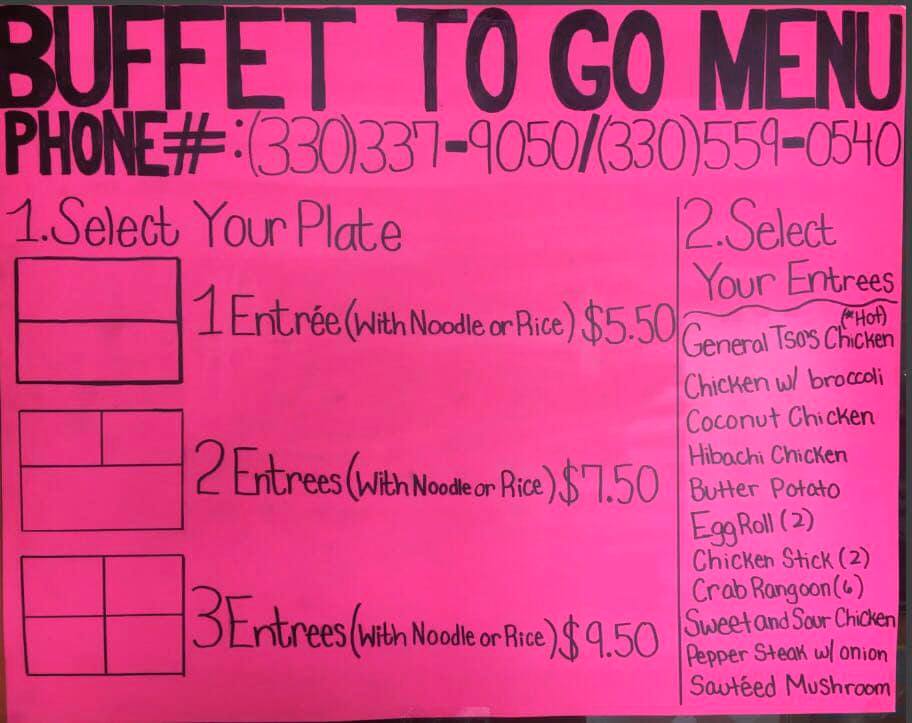 BUFFET TO GO MENU
PHONE#:(330)337-9050/(330)559-0540
1.Select Your Plate
1 Entrée (With Noodle or Rice) $5.50
2 Entrees (With Noodle or Rice) $7.50
3 Entrees (With Noodle or Rice) $9.50
2.Select
Your Entrees
(*Hot)
General Tso's Chicken
Chicken w/ broccoli
Coconut Chicken
Hibachi Chicken
Butter Potato
Egg Roll (2)
Chicken Stick (2)
Crab Rangoon (6)
Sweet and Sour Chicken
Pepper Steak w/ onion
Sautéed Mushroom